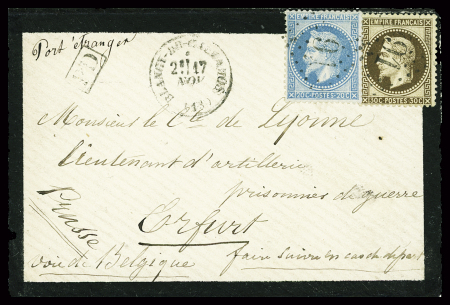 Port étranger
PD
2E/17
NOV.
EMPIRE FRANÇAIS
20C POSTES 20C
EMPIRE FRANÇAIS
30C POSTES 30C
Monsieur le Cte de Lyonne
lieutenant d'artillerie
prisonnier de guerre
Erfurt
Prusse
voie de Belgique
faire suivre en cas de départ